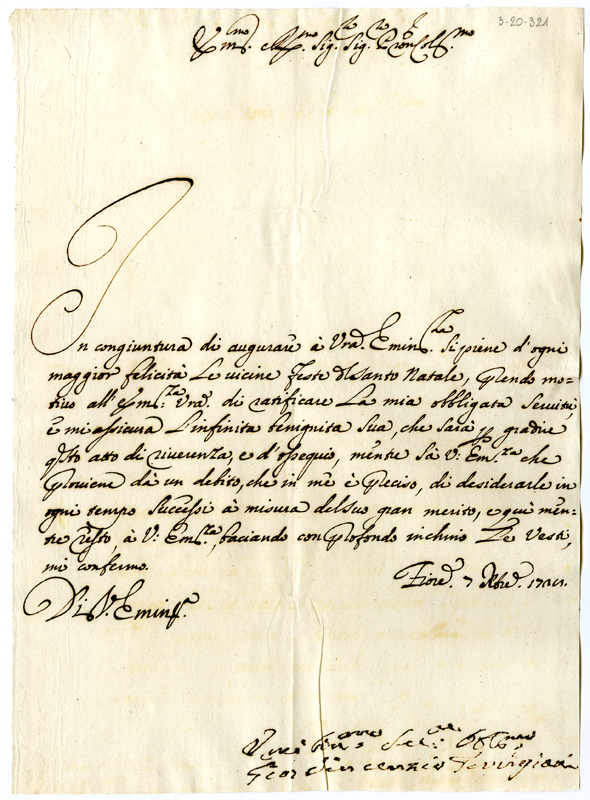 3-20-321
Em.mo e R.mo Sig.r Sig.r Pron Col.mo
In congiuntura di augurare à Vra. Emin.za sì piene d'ogni
maggior felicità Le vicine feste del Santo Natale, prendo mo=
tivo all' Em.za Vra. di ratificare La mia obbligata servitù,
e mi assicura L'infinita benignita sua, che sarà p gradire
qsto atto di riverenza, e d'ossequio, mentre sà V: Em.za che
proviene dà un debito, che in me è preciso, di desiderarle in
ogni tempo successi à misura del suo gran merito, e qui men=
tre resto, à V: Em.za, baciando con profondo inchino Le Vesti,
mi confermo.
Fiore. 7 Xbre.
Di V. Emin.za
Um.mo Ser.e Obb.mo